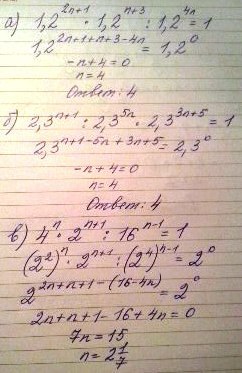 а) 1,2^{2n+1} · 1,2^{n+3} : 1,2^{4n} = 1
1,2^{2n+1+n+3-4n} = 1,2^0
-n+4=0
n=4
Ответ: 4
б) 2,3^{n+1} : 2,3^{5n} · 2,3^{3n+5} = 1
2,3^{n+1-5n+3n+5} = 2,3^0
-n+4=0
n=4
Ответ: 4
в) 4^n · 2^{n+1} : 16^{n-1} = 1
(2^2)^n · 2^{n+1} : (2^4)^{n-1} = 2^0
2^{2n+n+1-(16-4n)} = 2^0
2n+n+1-16+4n=0
7n=15
n=2 1/7